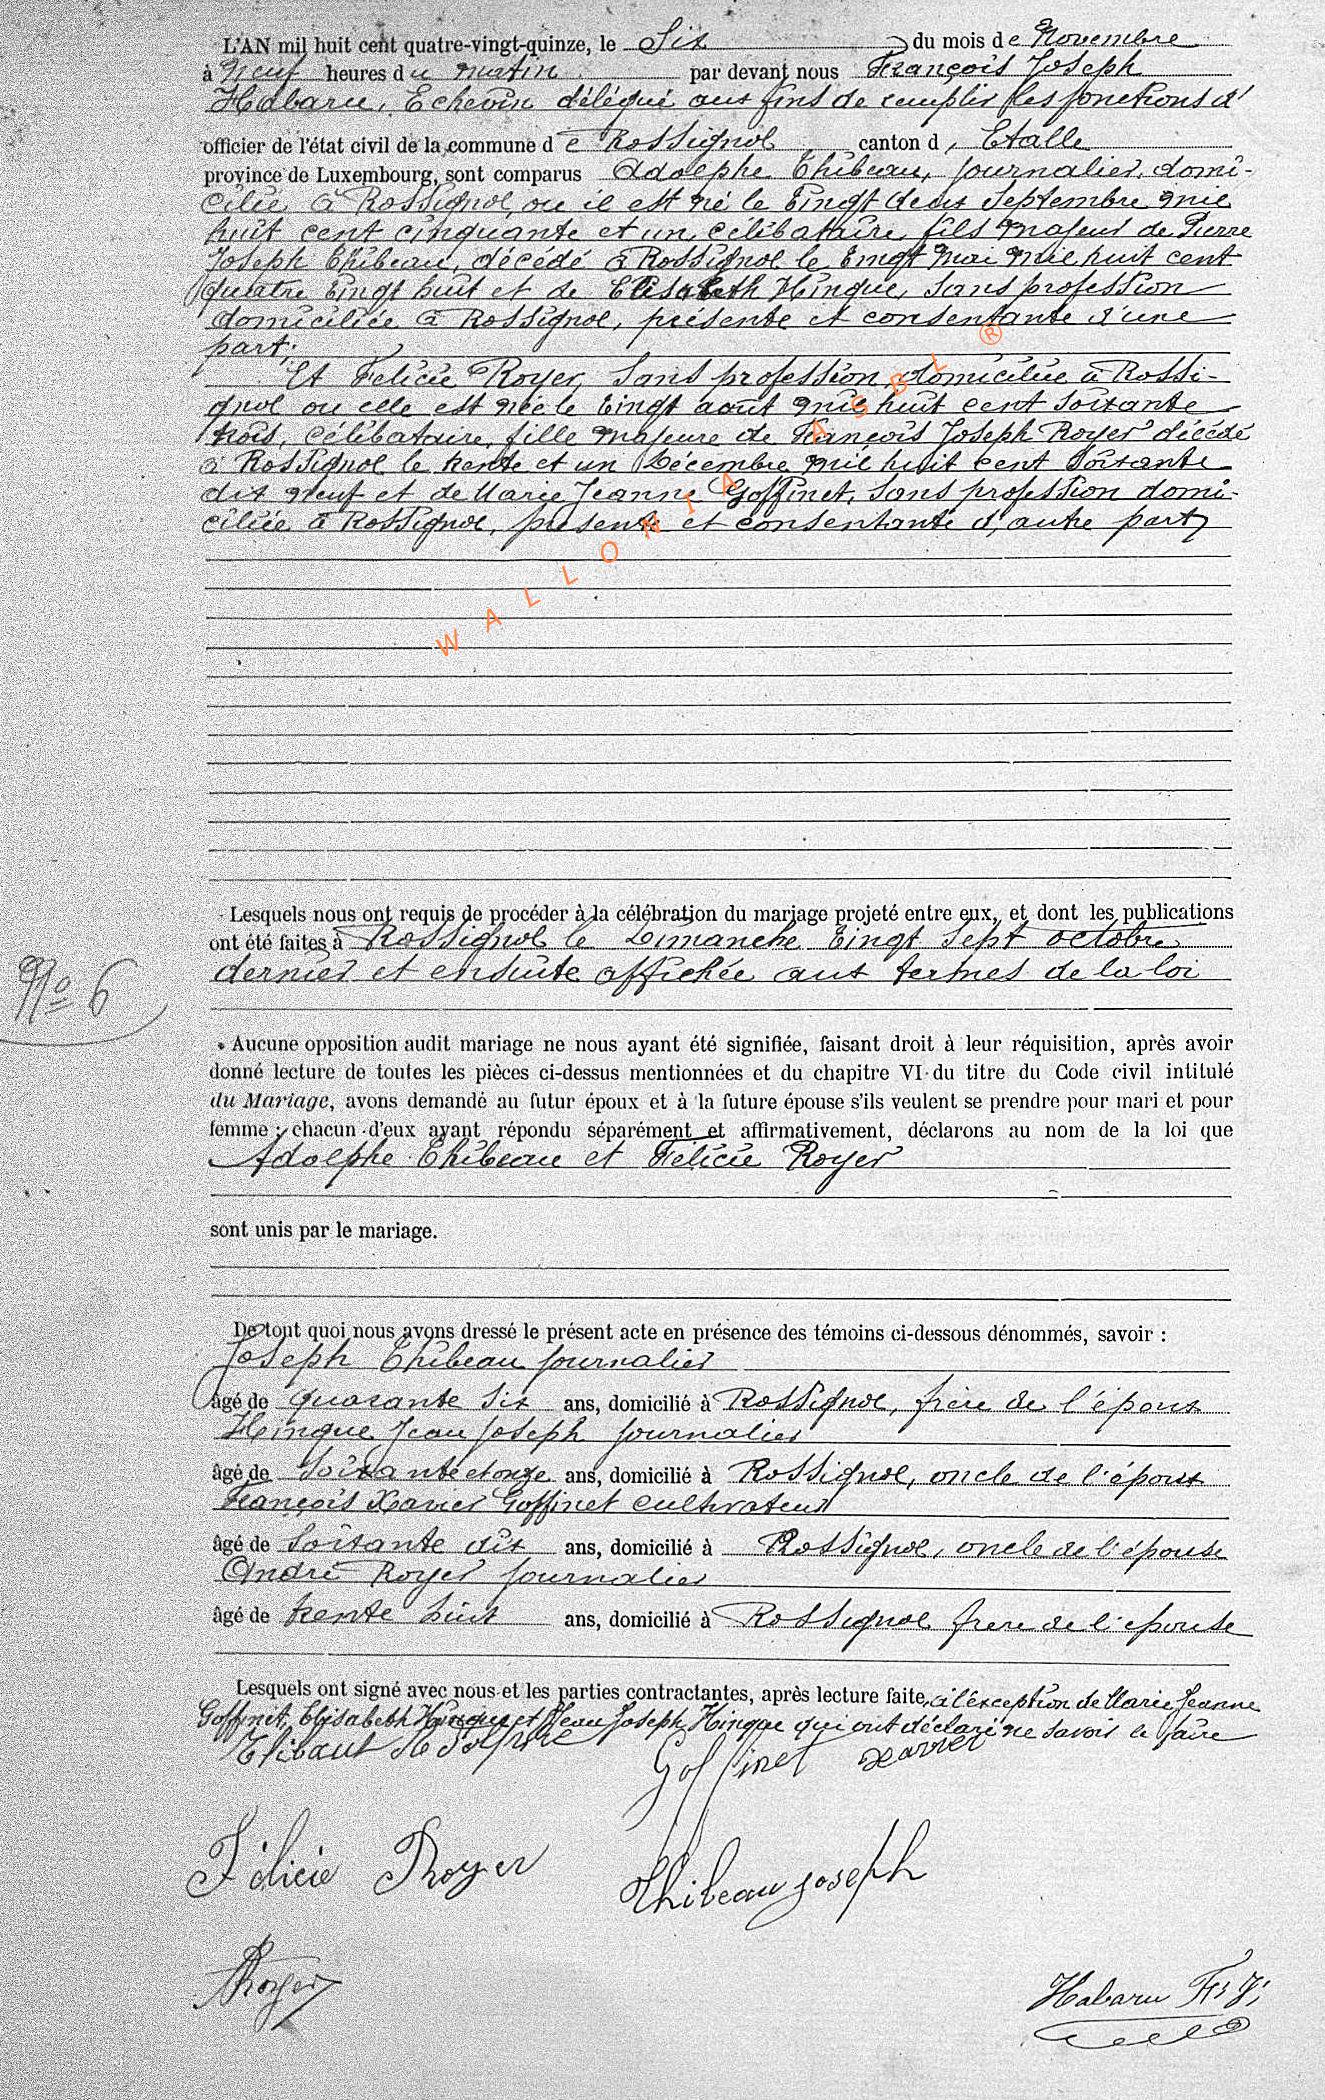 L'AN mil huit cent quatre-vingt-quinze, le Six du mois de Novembre
à Neuf heures du matin par devant nous François Joseph
Habaru, Echevin délégué aux fins de remplir les fonctions d'
officier de l'état civil de la commune de Rossignol canton d, Etalle
province de Luxembourg, sont comparus Adolphe Thibeau, journalier, domi-
cilié à Rossignol, ou il est né le Vingt deux Septembre mil
huit cent cinquante et un, célibataire, fils majeur de Pierre
Joseph Thibeau, décédé à Rossignol le Vingt Mai mil huit cent
quatre Vingt huit et de Elisabeth Hinque, Sans profession
domiciliée à Rossignol, présente et consentante d'une
part;
Et Felicie Royer, Sans profession, domiciliée à Rossi-
gnol ou elle est née le Vingt août mil huit cent soixante
trois, célibataire, fille majeure de François Joseph Royer décédé
à Rossignol le trente et un Décembre mil huit cent Soixante
dix neuf et de Marie Jeanne Goffinet, Sans profession domi-
ciliée à Rossignol, présente et consentante d, autre part
WALLONIA ASBL ®
Lesquels nous ont requis de procéder à la célébration du mariage projeté entre eux, et dont les publications
ont été faites à Rossignol le Dimanche Vingt Sept octobre
dernier et ensuite affichée aux termes de la loi
No 6
Aucune opposition audit mariage ne nous ayant été signifiée, faisant droit à leur réquisition, après avoir
donné lecture de toutes les pièces ci-dessus mentionnées et du chapitre VI du titre du Code civil intitulé
du Mariage, avons demandé au futur époux et à la future épouse s'ils veulent se prendre pour mari et pour
femme ; chacun d'eux ayant répondu séparément et affirmativement, déclarons au nom de la loi que
Adolphe Thibeau et Felicie Royer
sont unis par le mariage.
De tout quoi nous avons dressé le présent acte en présence des témoins ci-dessous dénommés, savoir :
Joseph Thibeau journalier
âgé de quarante Six ans, domicilié à Rossignol, frère de l'époux
Hinque Jean Joseph journalier
âgé de Soixante et onze ans, domicilié à Rossignol, oncle de l'époux
François Xavier Goffinet cultivateur
âgé de Soixante dix ans, domicilié à Rossignol, oncle de l'épouse
André Royer journalier
âgé de trente huit ans, domicilié à Rossignol frère de l'épouse
Lesquels ont signé avec nous et les parties contractantes, après lecture faite, à l'exception de Marie Jeanne
Goffinet, Elisabeth Hinque et Jean Joseph Hinque qui ont déclaré ne savoir le faire
Goffinet Xavier
Félicie Royer
Thibeau joseph
Royer
Habaru Fs J;